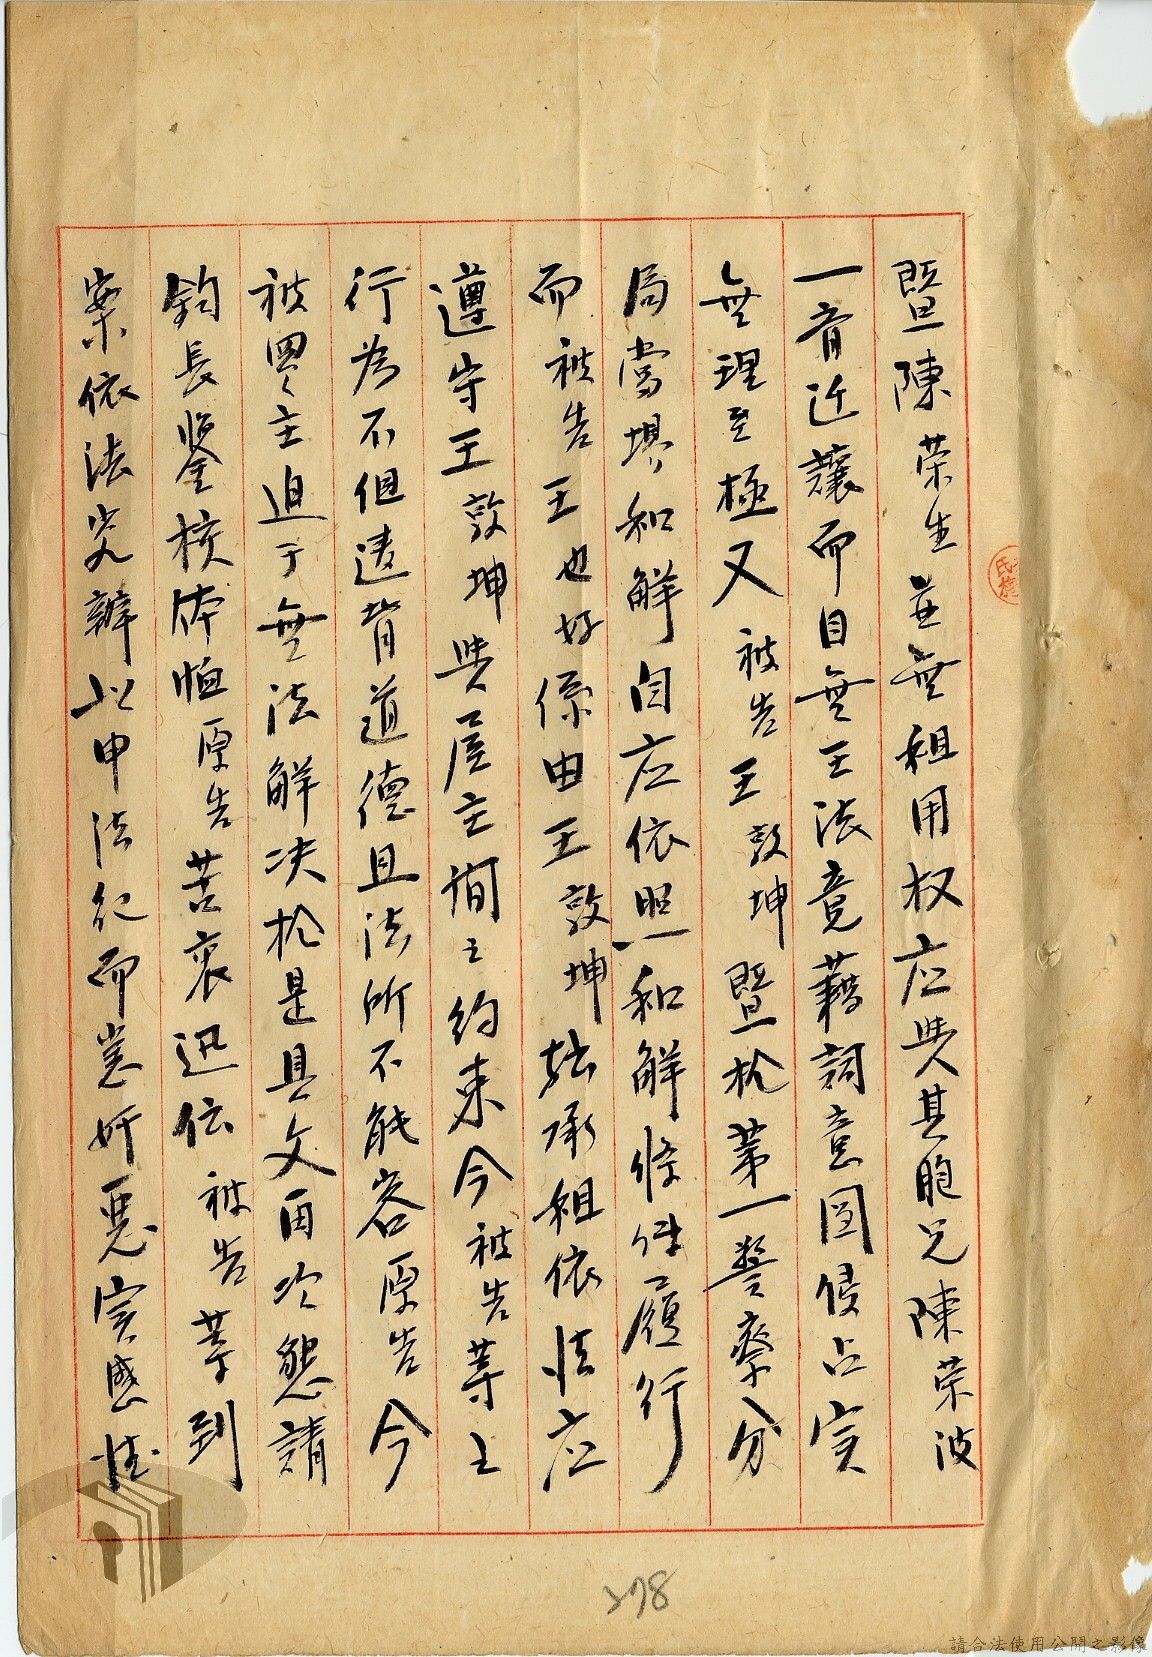 暨陳荣生並無租用权应與其胞兄陳荣波
一齊迁讓而目無王法竟藉詞意图侵占实
無理至極又被告王敦坤暨於第一警察分
局當場和解自应依照和解條件履行
而被告王也好係由王敦坤轉承租依法应
遵守王敦坤與屋主間之約束今被告等之
行為不但違背道德且法所不能容原告今
被累主迫于無法解决於是具文再次懇請
鈞長鉴核体恤原告苦衷迅伝被告等到
案依法究辦以申法紀而懲奸惡实感德
278
氏
請合法使用公開之影像